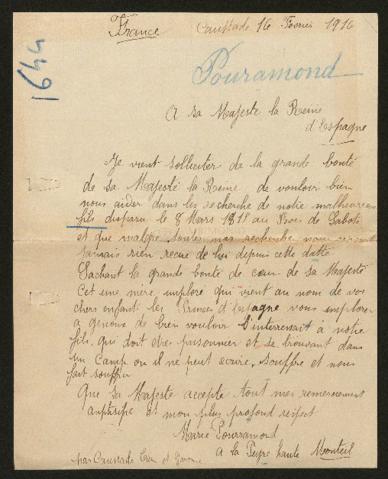 France
Caussade 16 Fevrier 1916
1644
Pouramond
A sa Majeste la Reine
d'Espagne
Je vient solliciter de la grande bonté
de Sa Majesté la Reine de vouloir bien
nous aider dans les recherche de notre malheureux
fils disparu le 8 Mars au Bois de Sabot
et que malgre toute nos recherche nous
jamais rien recue de lui depuis cette datte
Sachant la grande bonté de cœur de Sa Majesté
Cet une mère implore qui vient au nom de vos
chers enfant les Prince d'Espagne vous implore
a genous de bien vouloir s'interressait à notre
fils qui doit etre prisonner et se trouvant dans
un Camp ou il ne peut ecrire, souffre et nous
fait souffrir
Que sa Majeste accepte tout mes remerciement
anticipe et mon plus profond respect
Marie Pouramond
a la Peyre haute Monteil
par Caussade Tarn et Garonne